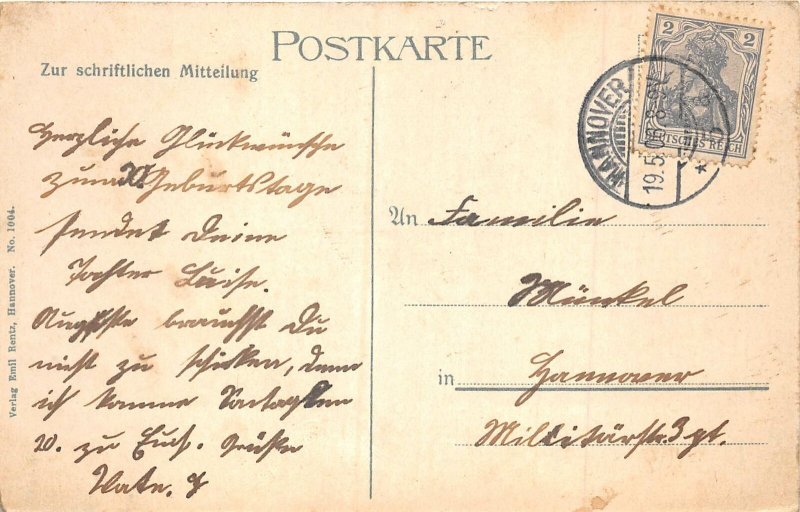 POSTKARTE
Zur schriftlichen Mitteilung
Herzliche Glückwünsche
zum 20. Geburtstage
sendet Deine
Tochter Luise.
Auguste brauchst Du
nicht zu schicken, denn
ich komme
20. zu Euch. Grüße
Vater.
An Familie
Münkel
in Hannover
Militärstr. 3 pt.
2
DEUTSCHES REICH
HANNOVER
19.5.06.
Verlag Emil Rentz, Hannover. No. 1004.